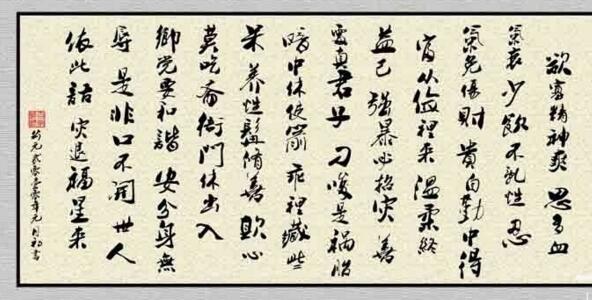 欲寡精神爽思多血
氣衰少飲不亂性忍
氣免傷財貴自勤中得
富从儉裡來溫柔終
益己強暴必招灾善
處真君子刁唆是禍胎
暗中休使箭乖裡藏些
呆養性須脩善欺心
莫吃齋衙門休出入
鄉党要和諧安分身無
辱是非口不開世人
依此語灾退福星來
年元月初書